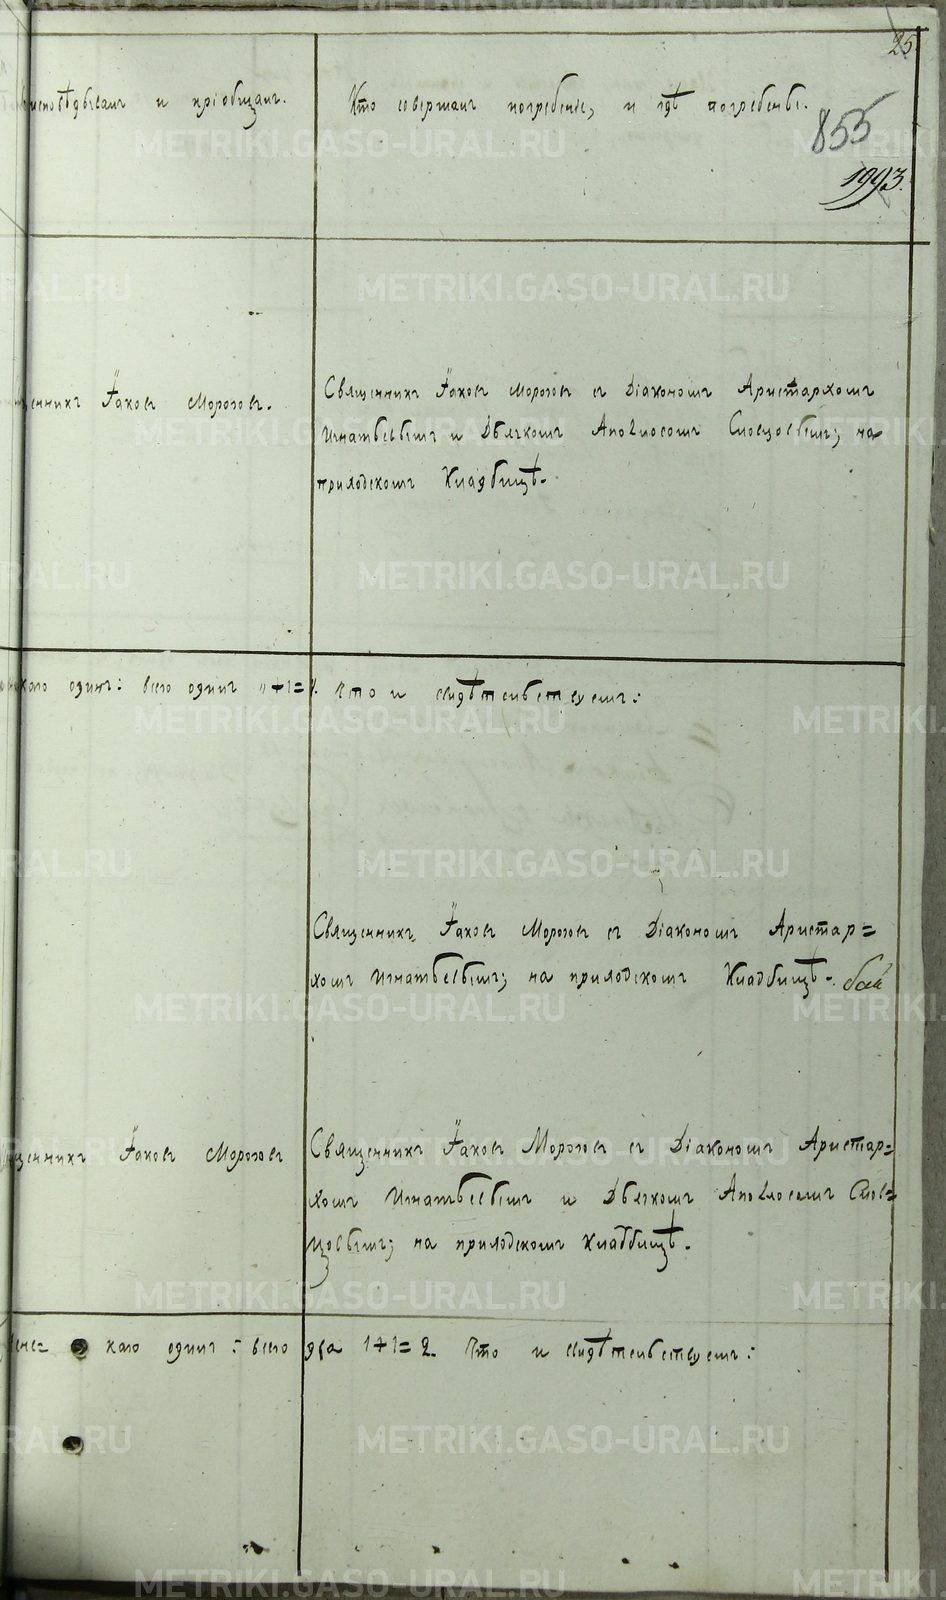 25
исповѣдывалъ и пріобщалъ.
Кто совершалъ погребеніе, и гдѣ погребены.
855
1993.
Іаковъ Морозовъ.
Священникъ Іаковъ Морозовъ съ Діакономъ Аристархомъ
Игнатьевымъ и Дьячкомъ Аполлосомъ Словцовымъ; на
приходскомъ Кладбищѣ.
одинъ: всего одинъ "+1=1. Что и свидѣтельствуемъ:
Священникъ Іаковъ Морозовъ съ Діакономъ Аристар=
хомъ Игнатьевымъ; на приходскомъ Кладбищѣ.
Іаковъ Морозовъ
Священникъ Іаковъ Морозовъ съ Діакономъ Аристар=
хомъ Игнатьевымъ и Дьячкомъ Аполлосомъ Слов=
цовымъ; на приходскомъ кладбищѣ.
каго одинъ: всего два 1+1=2. Что и свидѣтельствуемъ:
METRIKI.GASO-URAL.RU